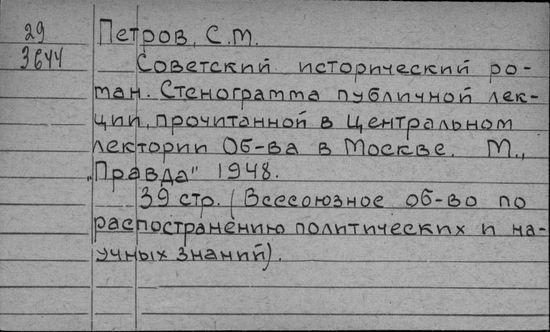 29
3644
Петров, С.М.
Советский исторический ро-
ман. Стенограмма публичной лек-
ции, прочитанной в Центральном
лектории Об-ва в Москве. М.,
„Правда" 1948.
39 стр. (Всесоюзное об-во по
распостранению политических и на-
учных знаний).